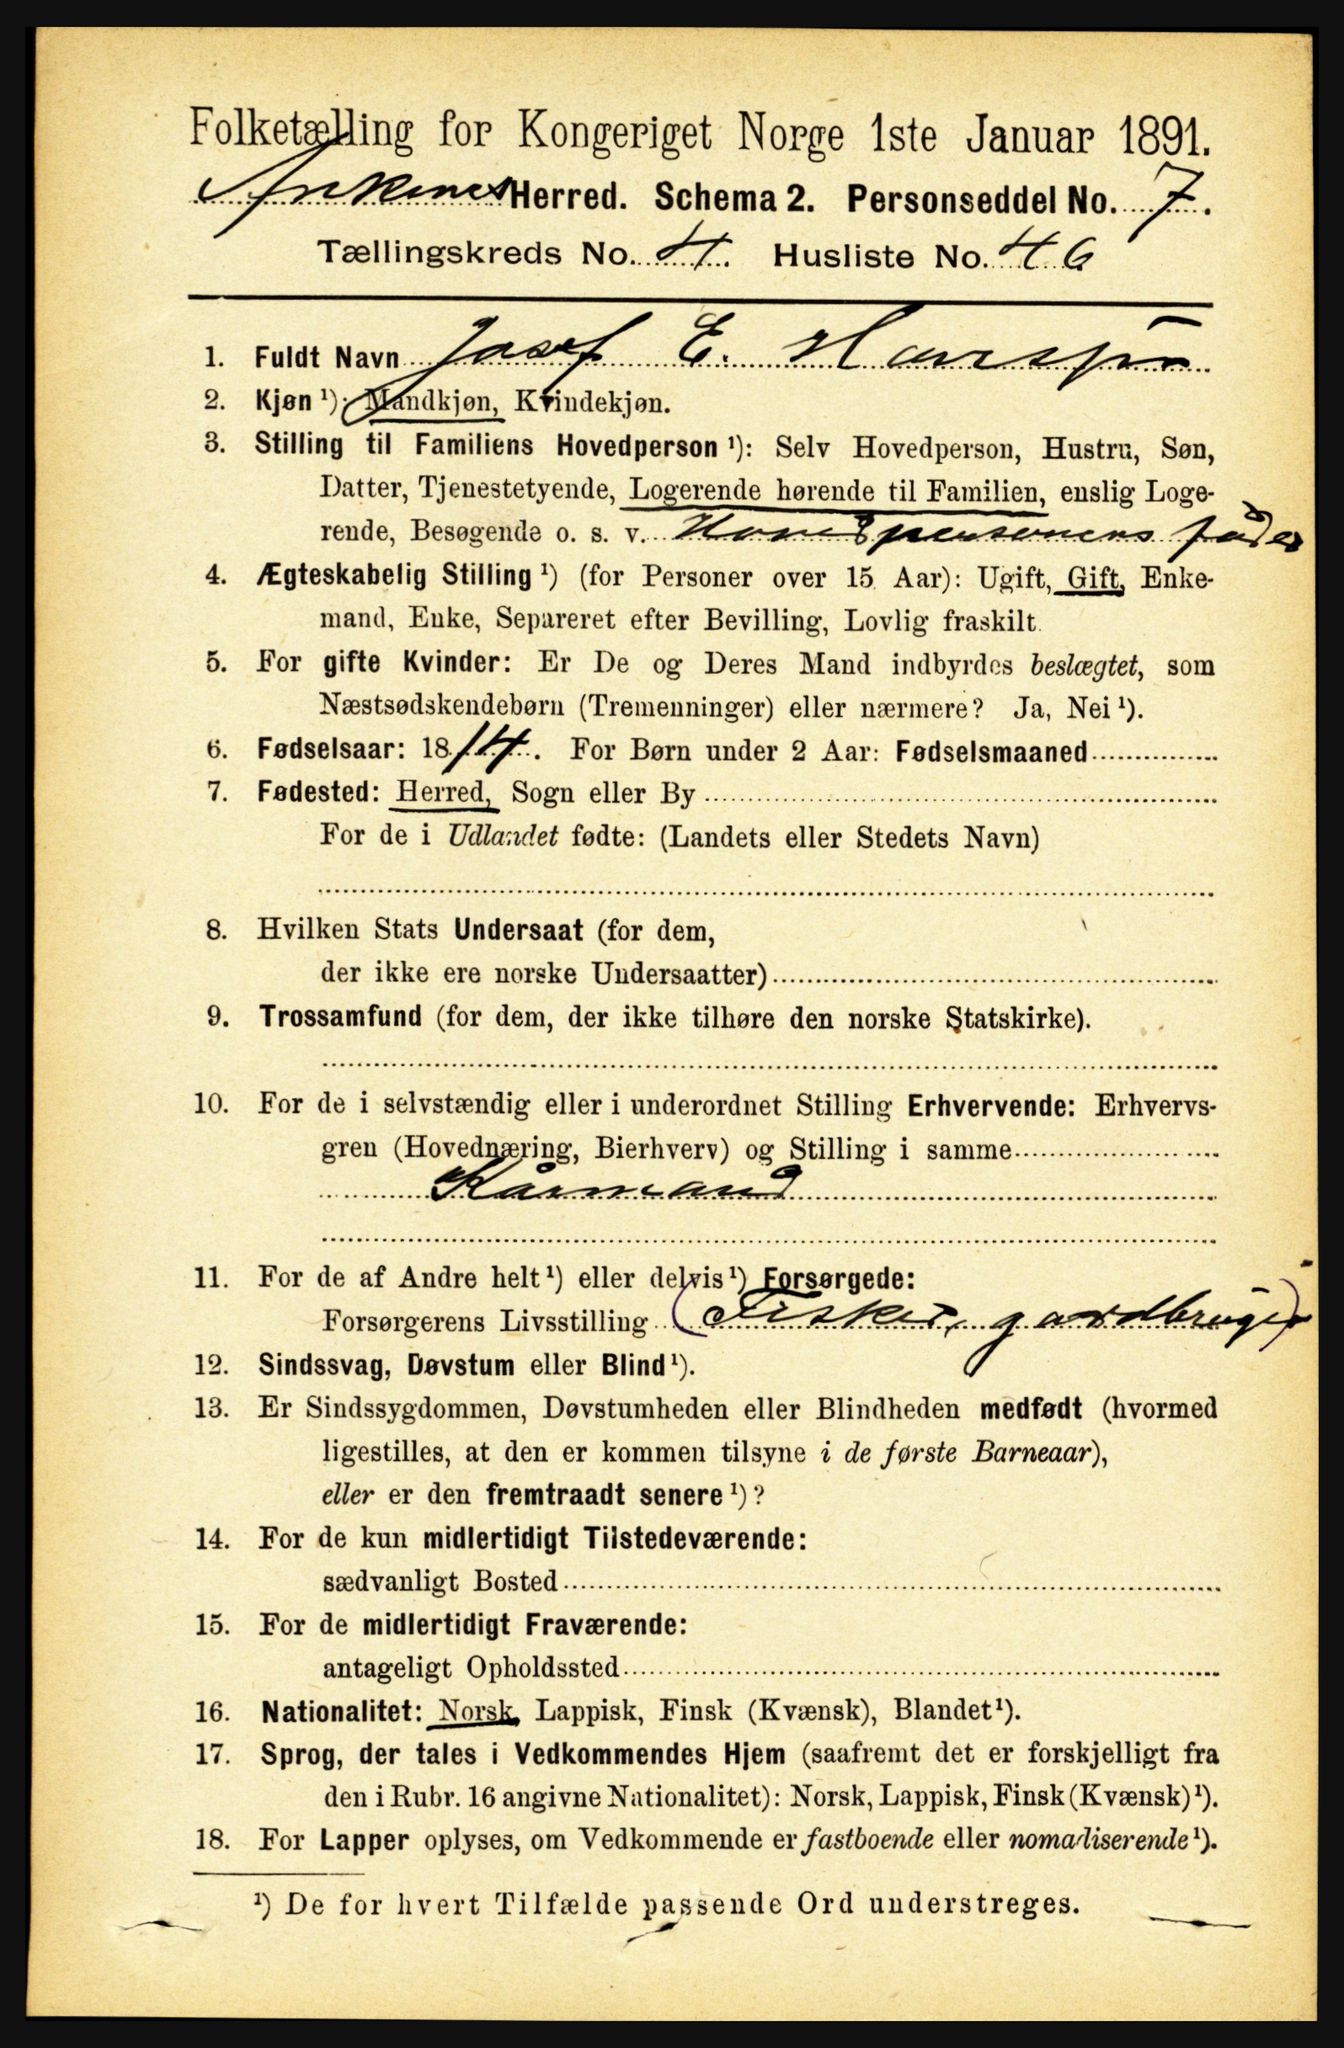 Folketælling for Kongeriget Norge 1ste Januar 1891.
Ankenes Herred. Schema 2. Personseddel No. 7.
Tællingskreds No. 4. Husliste No. 46
1. Fuldt Navn Josef E.
2. Kjøn ¹): Mandkjøn, Kvindekjøn.
3. Stilling til Familiens Hovedperson ¹): Selv Hovedperson, Hustru, Søn,
Datter, Tjenestetyende, Logerende hørende til Familien, enslig Loge-
rende, Besøgende o. s. v. Hovedpersonens fader
4. Ægteskabelig Stilling ¹) (for Personer over 15 Aar): Ugift, Gift, Enke-
mand, Enke, Separeret efter Bevilling, Lovlig fraskilt.
5. For gifte Kvinder: Er De og Deres Mand indbyrdes beslægtet, som
Næstsødskendebørn (Tremenninger) eller nærmere? Ja, Nei ¹).
6. Fødselsaar: 1814. For Børn under 2 Aar: Fødselsmaaned
7. Fødested: Herred, Sogn eller By
For de i Udlandet fødte: (Landets eller Stedets Navn)
8. Hvilken Stats Undersaat (for dem,
der ikke ere norske Undersaatter)
9. Trossamfund (for dem, der ikke tilhøre den norske Statskirke).
10. For de i selvstændig eller i underordnet Stilling Erhvervende: Erhvervs-
gren (Hovednæring, Bierhverv) og Stilling i samme
Kårmand
11. For de af Andre helt ¹) eller delvis ¹) Forsørgede:
Forsørgerens Livsstilling (Fisker, gardbruger)
12. Sindssvag, Døvstum eller Blind ¹).
13. Er Sindssygdommen, Døvstumheden eller Blindheden medfødt (hvormed
ligestilles, at den er kommen tilsyne i de første Barneaar),
eller er den fremtraadt senere ¹)?
14. For de kun midlertidigt Tilstedeværende:
sædvanligt Bosted
15. For de midlertidigt Fraværende:
antageligt Opholdssted
16. Nationalitet: Norsk, Lappisk, Finsk (Kvænsk), Blandet ¹).
17. Sprog, der tales i Vedkommendes Hjem (saafremt det er forskjelligt fra
den i Rubr. 16 angivne Nationalitet): Norsk, Lappisk, Finsk (Kvænsk) ¹).
18. For Lapper oplyses, om Vedkommende er fastboende eller nomadiserende ¹).
¹) De for hvert Tilfælde passende Ord understreges.